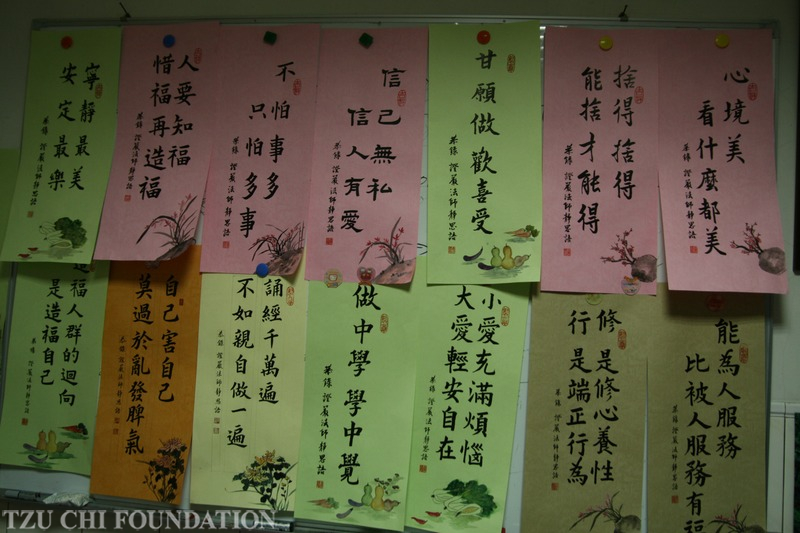 心境美
看什麼都美
恭錄 證嚴法師靜思語
捨得捨得
能捨才能得
恭錄 證嚴法師靜思語
甘願做 歡喜受
恭錄 證嚴法師靜思語
信己無私
信人有愛
恭錄 證嚴法師靜思語
不怕事多
只怕多事
恭錄 證嚴法師靜思語
人要知福
惜福再造福
恭錄 證嚴法師靜思語
寧靜最美
安定最樂
恭錄 證嚴法師靜思語
能為人服務
比被人服務有福
恭錄 證嚴法師靜思語
修是修心養性
行是端正行為
恭錄 證嚴法師靜思語
小愛充滿煩惱
大愛輕安自在
恭錄 證嚴法師靜思語
做中學 學中覺
恭錄 證嚴法師靜思語
誦經千萬遍
不如親自做一遍
恭錄 證嚴法師靜思語
自己害自己
莫過於亂發脾氣
恭錄 證嚴法師靜思語
造福人群的迴向
是造福自己
恭錄 證嚴法師靜思語
TZU CHI FOUNDATION